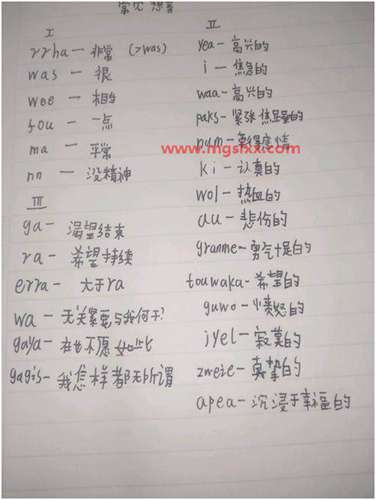 常见想音
I
rrha — 非常 (>was)
was — 很
wee — 相当
fou — 一点
ma — 平常
nn — 没精神
III
ga — 渴望结束
ra — 希望持续
erra — 大于ra
wa — 无关累要与我何干?
gaya — 在也不愿如此
gagis — 我怎样都无所谓
II
yea — 高兴的
i — 焦急的
waa — 高兴的
paks — 紧张焦虑的
num —
www.mgslxx.com
ki — 认真的
wol — 热血的
au — 悲伤的
granme — 勇气十足的
touwaka — 希望的
guwo — 愤怒的
jyel — 寂寞的
zweie — 真挚的
apea — 沉浸于幸福的